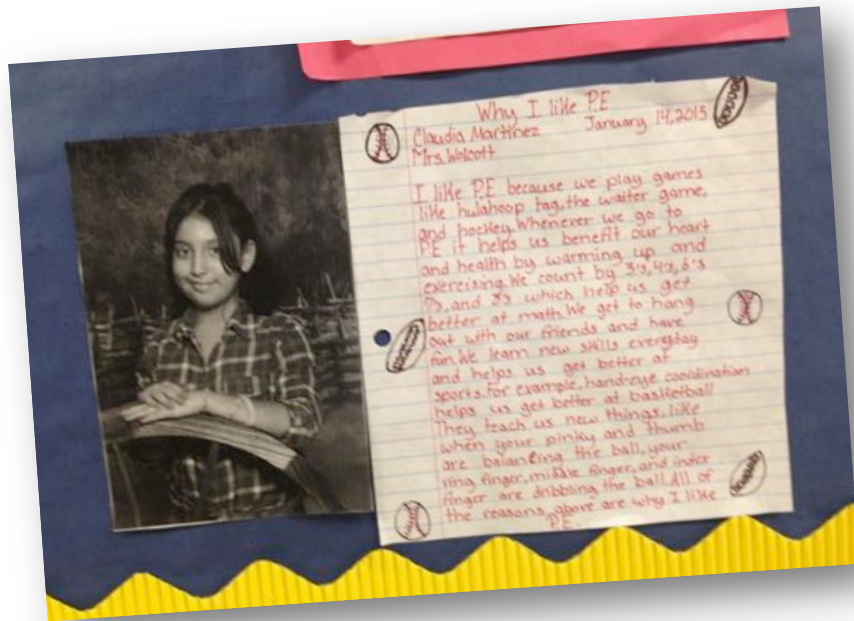 Why I like P.E
Claudia Martinez January 14, 2015
Mrs. Wolcott
I like P.E because we play games
like hulahoop tag, the waiter game,
and hockey. Whenever we go to
PE it helps us benefit our heart
and health by warming up and
exercising. We count by 3's, 4's, 6's
7's, and 8's which help us get
better at math. We get to hang
out with our friends and have
fun. We learn new skills everyday
and helps us get better at
sports. For example, hand-eye coordination
helps us get better at basketball
They teach us new things, like
when your pinky and thumb
are balancing the ball, your
ring finger, middle finger, and index
finger are dribbling the ball. All of
the reasons above are why I like
P.E.